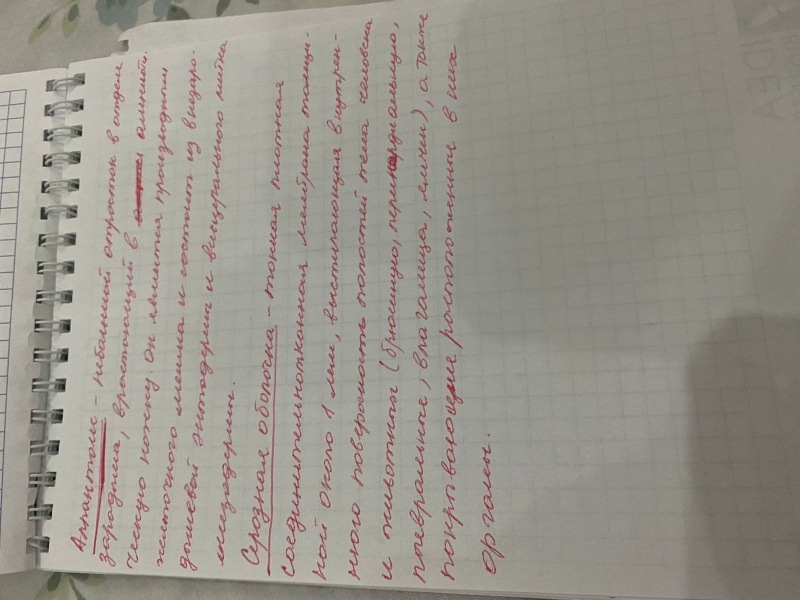 Аллантоис - небольшой отросток в отделе
зародыша, врастающий в амнioti-
ческую ножку. Он является производным
желточного мешка и состоит из внезаро-
дышевой энтодермы и висцерального листка
мезодермы.
Серозная оболочка - тонкая плотная
соединительнотканная мембрана толщи-
ной около 1 мм, выстилающая внутрен-
нюю поверхность полостей тела человека
и животных (брюшную, перикардиальную,
плевральные, влагалища, яички), а также
покрывающие расположенные в них
органы.
IDEA